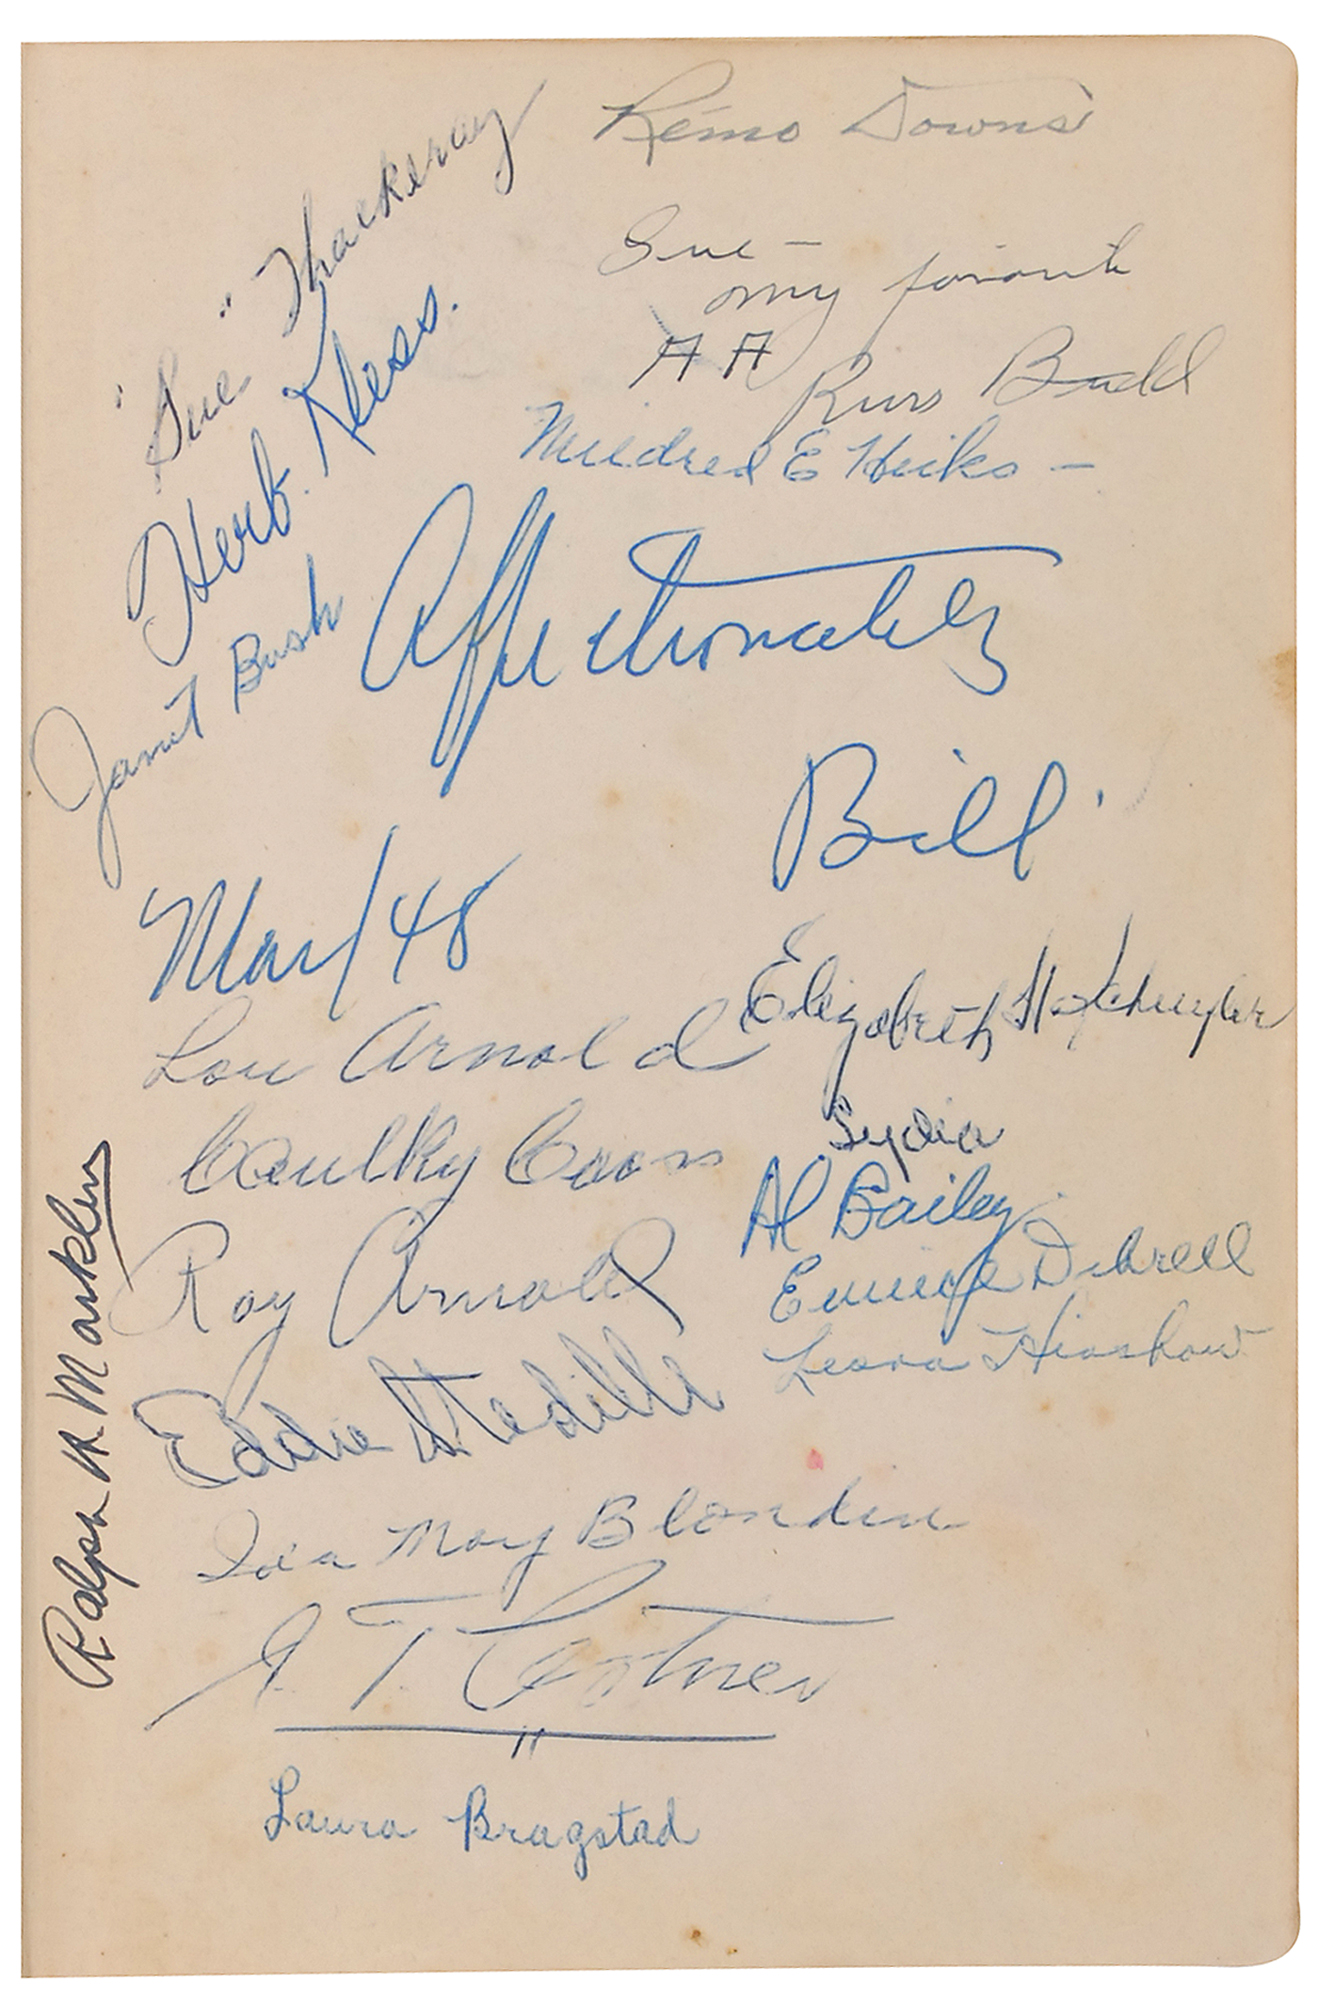 Remo Downs
"Sue" Thackeray
Sue —
my favorite
AA
Russ Budd
Herb. Kless.
Mildred E Hicks —
Janet Bush
Affectionately
Bill
Mar/48
Elizabeth
Lou Arnold
Lydia
Caulky Coons
Al Bailey
Roy Arnold
Eunice Dibrell
Leora Hinshaw
Eddie Stedille
Ralph W Markley
Ida May Blondin
J. T. Cotner
Laura Bragstad